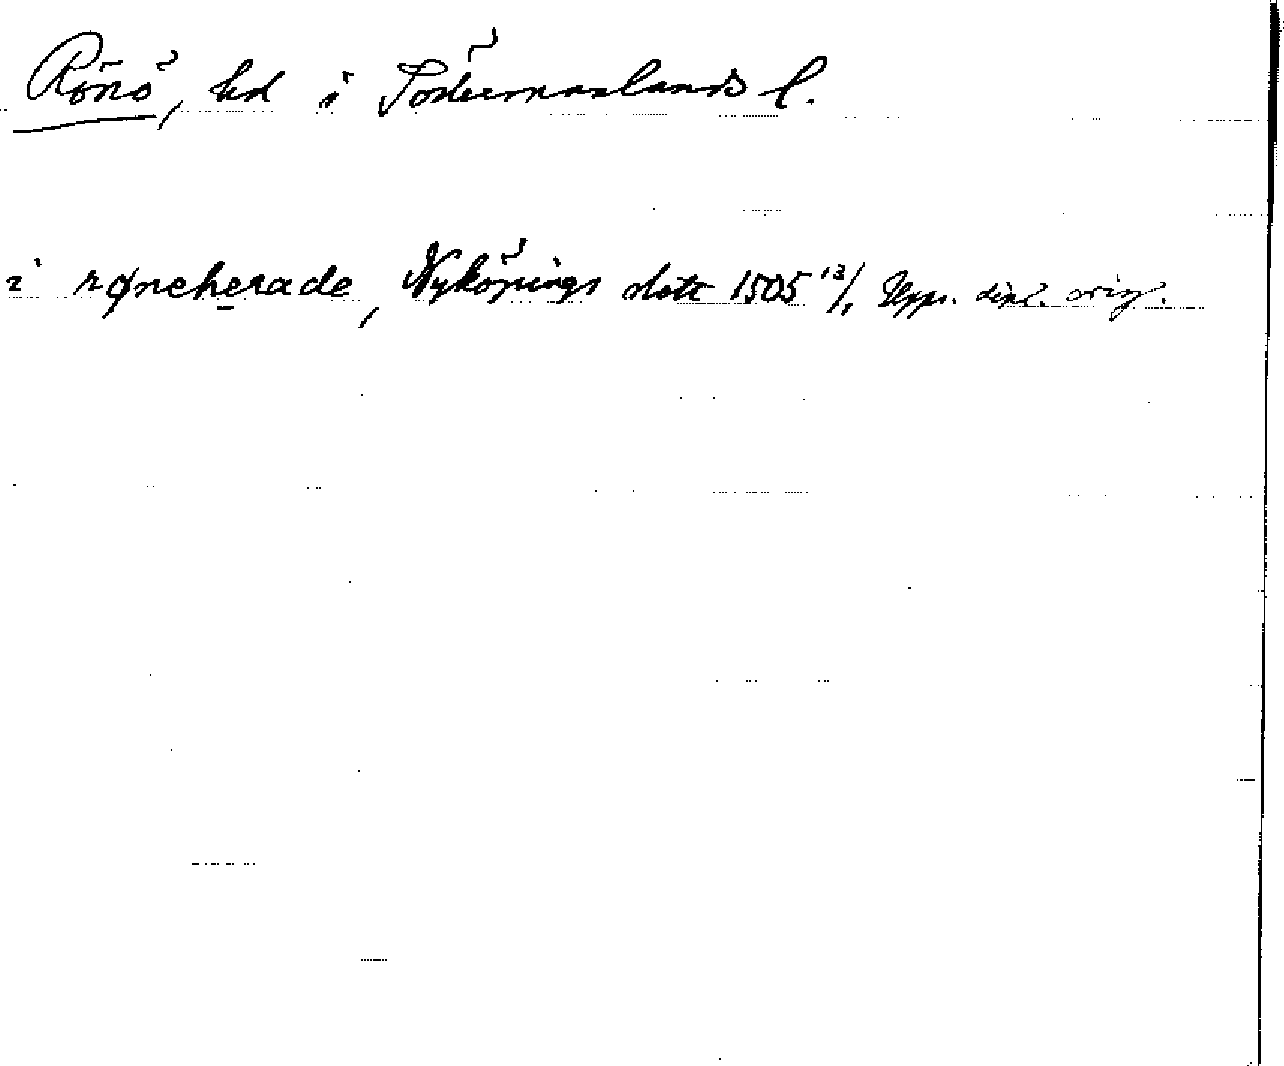 Rönö, hd i Södermanlands l.
i røneherade, Nyköpings slott 1505 13/1 Upps. dipl. orig.